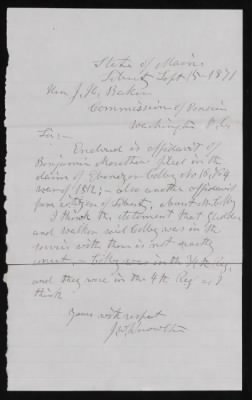 State of Maine
Liberty Sept 15 - 1871
Hon J, H, Baker
Commission of Pension
Washington D.C.
Sir;-
Enclosed is affidavit of
Benjamin filed in the
claim of Ebenezer Colby No 16,764
war of 1812; - also another affidavit
from citizen of Liberty, about Mr Colby
I think the statement that
and said Colby was in the
service with them is not exactly
correct, - Colby was in the Reg,
and they were in the 4th Reg as I
think
Yours with respect
J. W. Knowlton